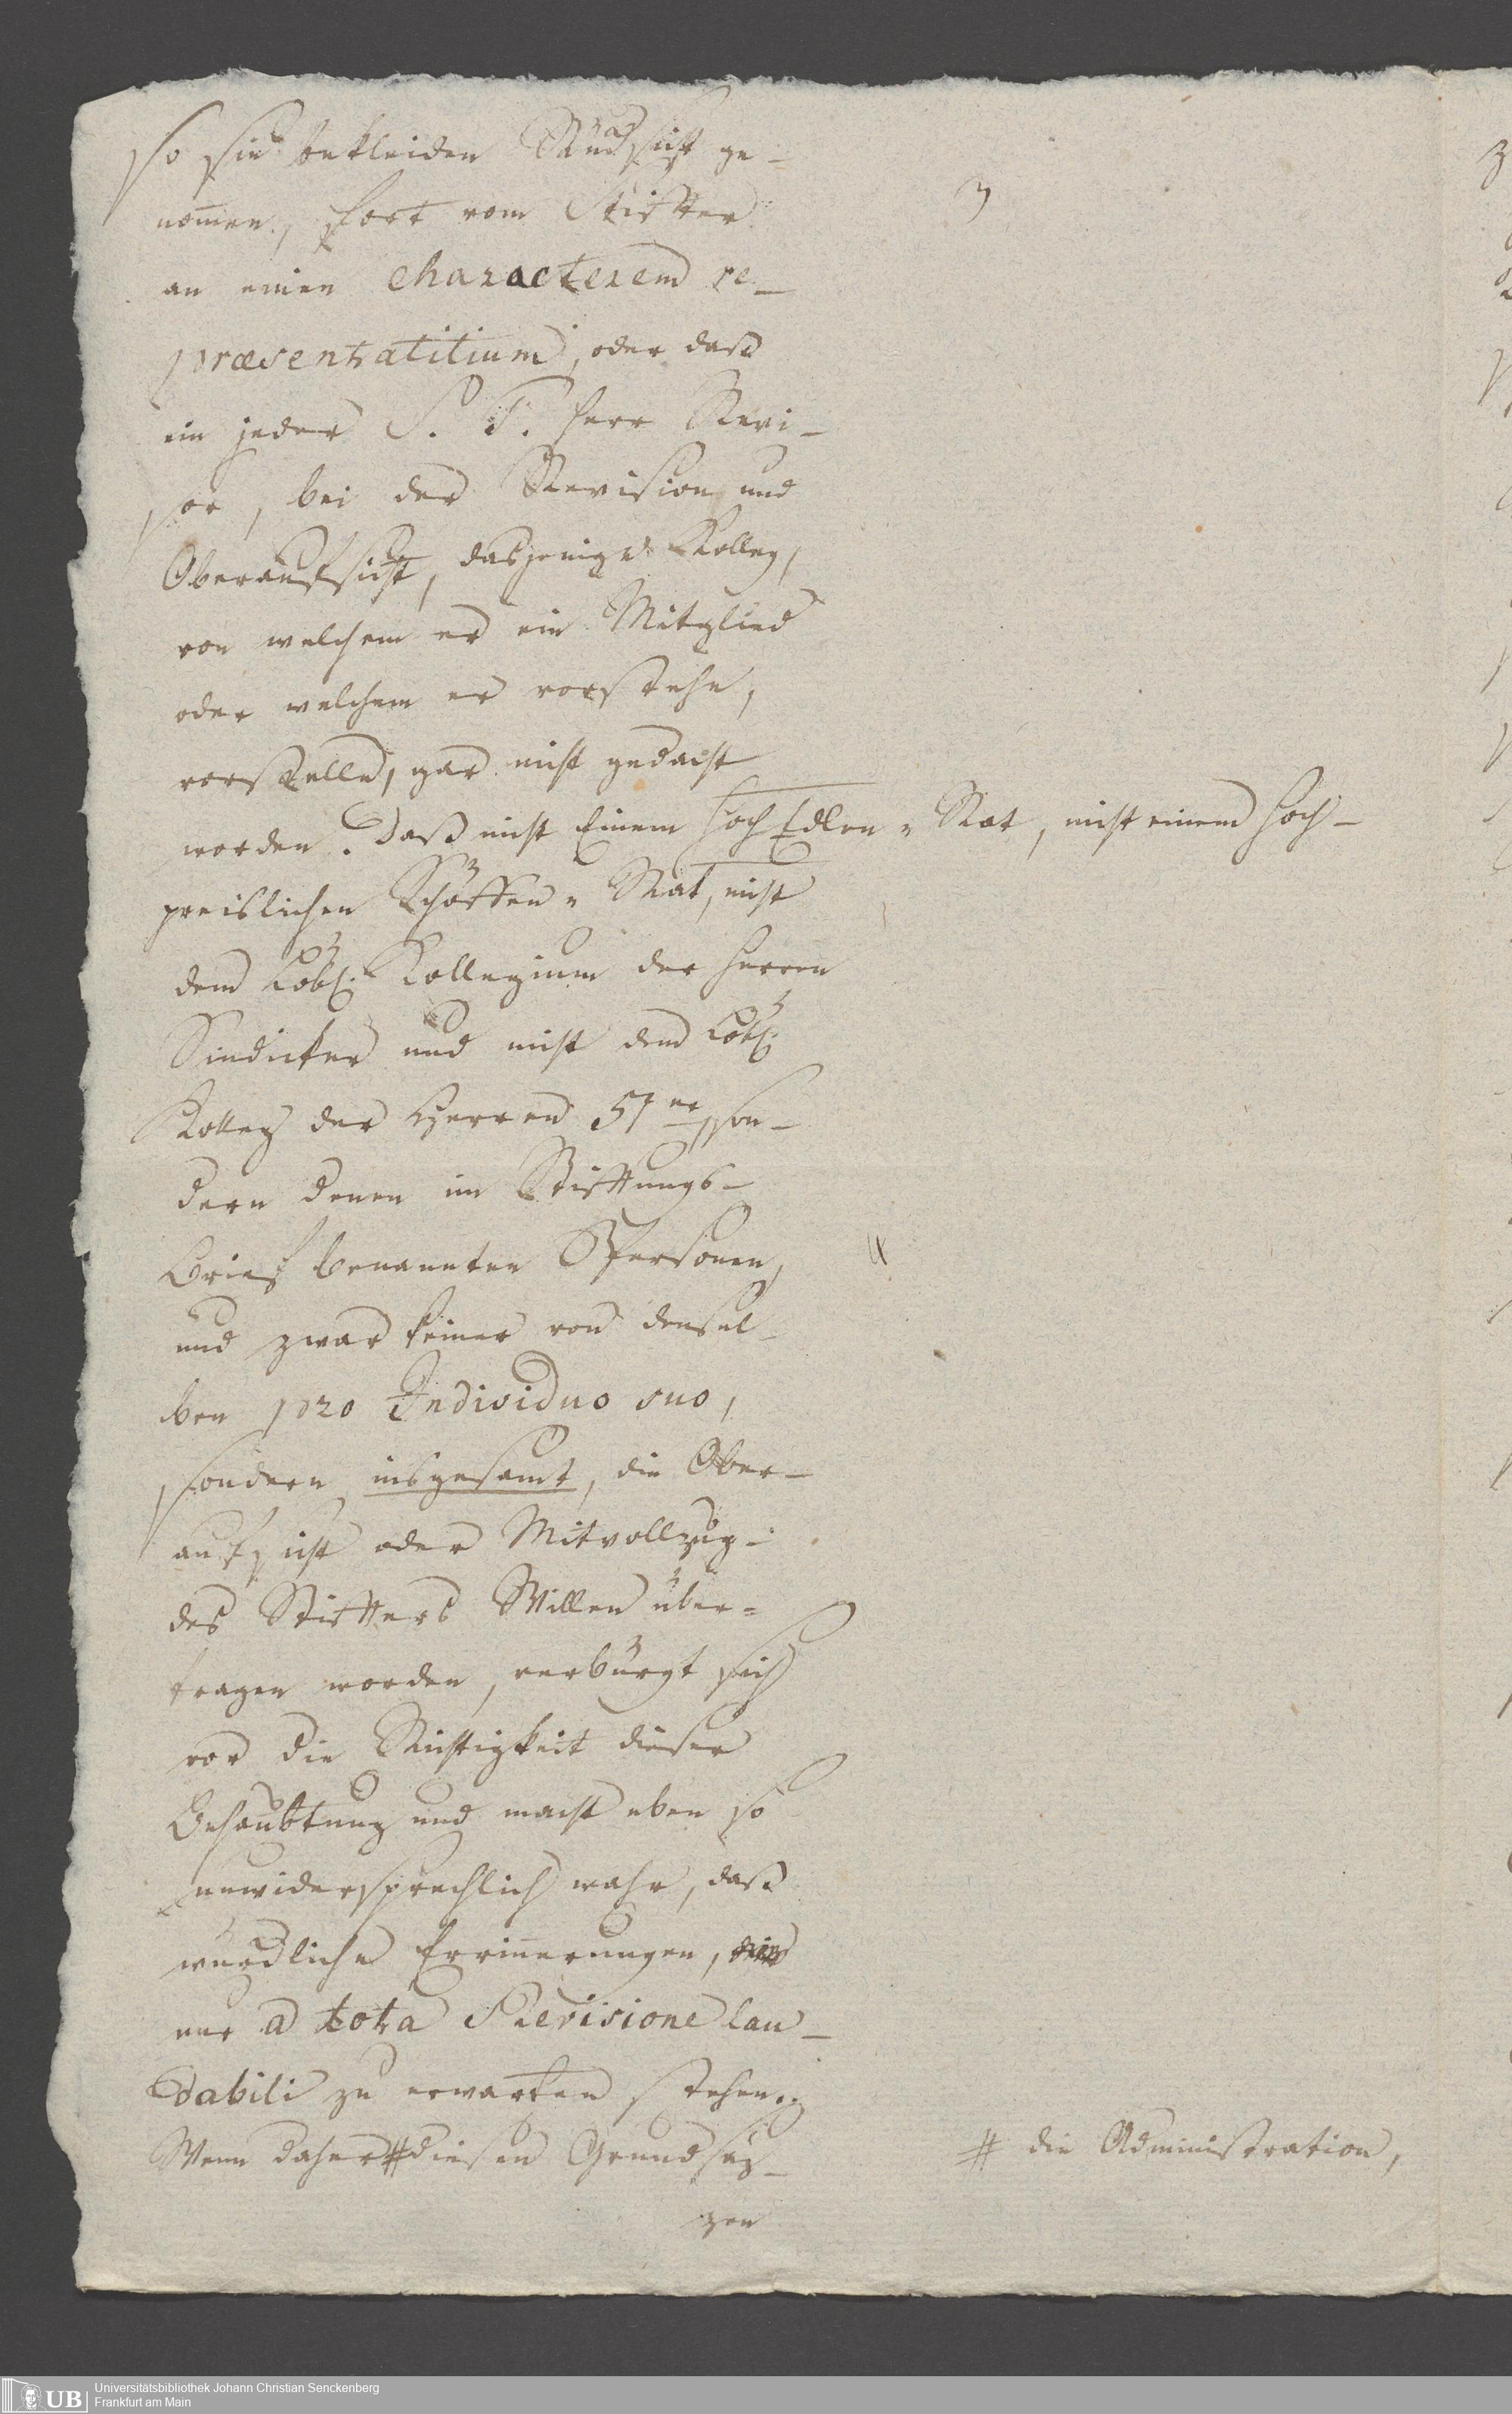 so sie bekleiden Rücksicht ge-
nom̅en, fort vom Stifter
an einen characterem re-
præsentatitium, oder dass
ein jeder S. T. Herr Revi-
sor, bei der Revision und
Oberaufsicht, dasjenige Kolleg,
von welchem er ein Mitglied
oder welchem er vorstehe,
vorstelle, gar nicht gedacht
worden. Daß nicht Einem HochEdlen Rat, nicht einem Hoch-
preislichen Schöffen Rat, nicht
dem Löbl. Kollegium der Herren
Sindicker und nicht dem Löbl.
Kolleg der Herren 51er, son-
dern denen im Stiftungs-
Brief benannten Personen,
und zwar keiner von densel-
ben pro Individuo suo,
sondern insgesamt, die Ober-
aufsicht oder Mitvollzug
des Stifters Willen über-
tragen worden, verbürgt sich
vor die Richtigkeit dieser
Behaubtung und macht eben so
unwidersprechlich wahr, dass
Errinnerungen,
nur a tota Revisione lau-
dabili zu erwarten stehen.
Wenn daher # diesen Grundsäz-
# die Administration,
zen
UB
Universitätsbibliothek Johann Christian Senckenberg
Frankfurt am Main